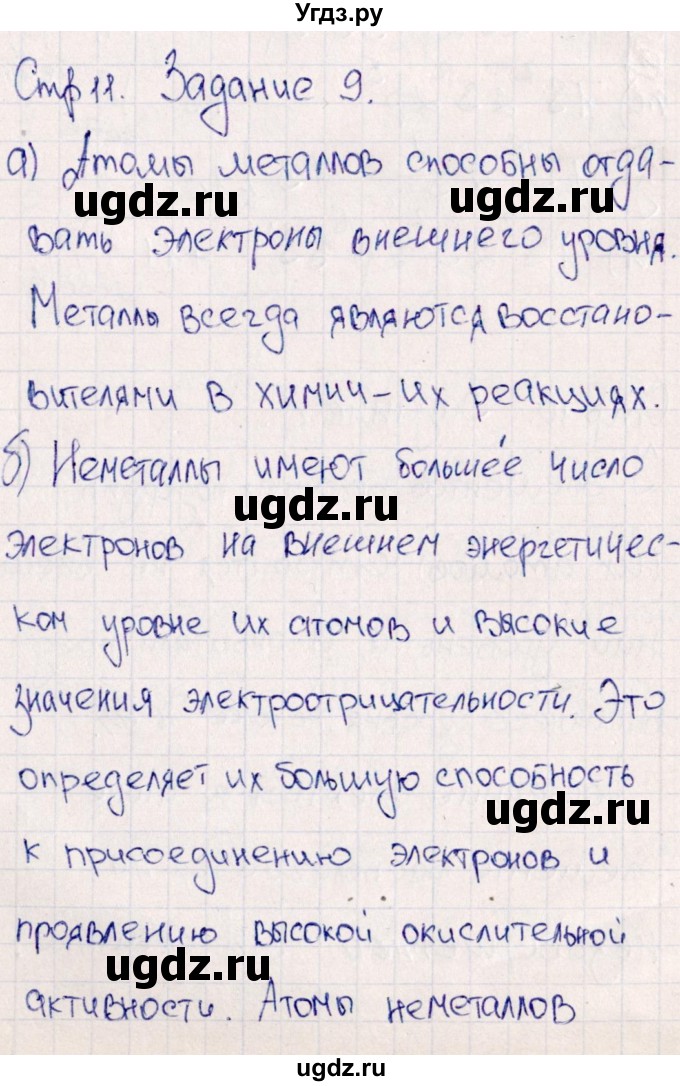 Угдз.ру
Стр 11. Задание 9.
а) Атомы металлов способны отда-
ugdz.ru ugdz.ru
вать электроны внешнего уровня.
Металлы всегда являются восстано-
вителями в химич-их реакциях.
б) Неметаллы имеют большее число
ugdz.ru
электронов на внешнем энергетичес-
ком уровне их атомов и высокие
значения электроотрицательности. Это
определяет их большую способность
ugdz.ru
к присоединению электронов и
проявлению высокой окислительной
ugdz.ru
активности. Атомы неметаллов
ugdz.ru